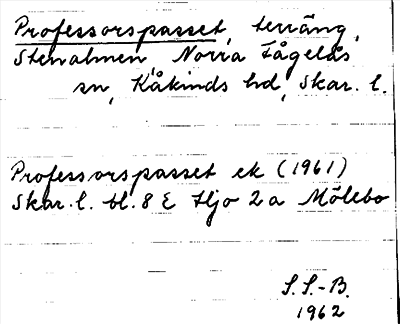 Professorspasset, terräng,
Stenalmen, Norra Fågelås
sn, Kåkinds hd, Skar. l.
Professorspasset ek (1961)
Skar. l. bl. 8 E Hjo 2a Mölebo
S.S.-B.
1962